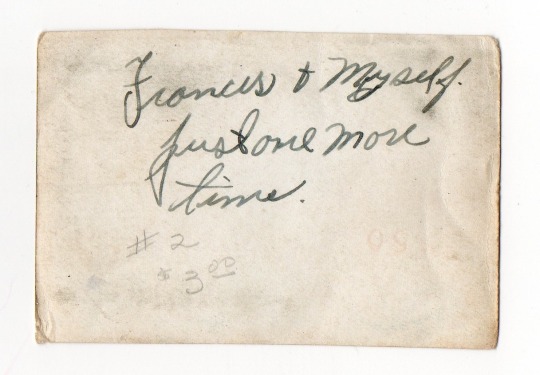 Frances + Myself.
just one more
time.
# 2
* 3 00
50